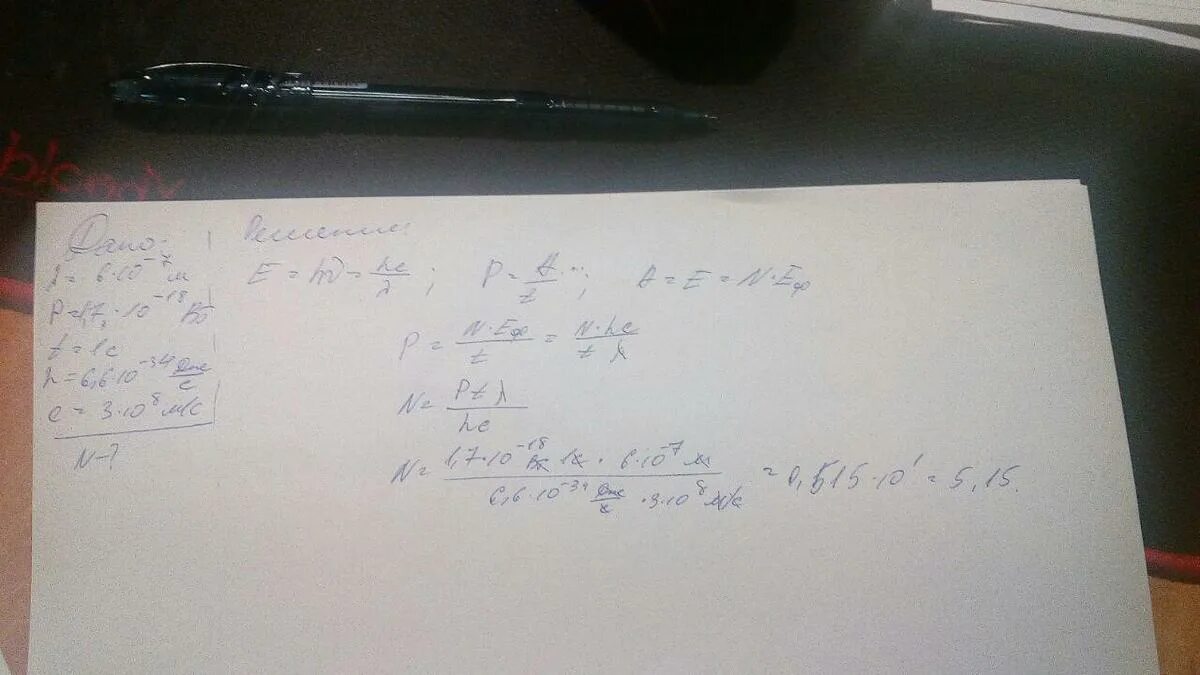 blendy
Дано:
λ = 6·10⁻⁷ м
P = 1,7·10⁻¹⁸ Вт
t = 1с
h = 6,6·10⁻³⁴ Дж/с
c = 3·10⁸ м/с
N-?
Решение:
E = hν = hc/λ ; P = A/t ; A = E = N·Eф
P = N·Eф/t = N·hc/t λ
N = P t λ/hc
N = 1,7·10⁻¹⁸ Вт 1с · 6·10⁻⁷ м/6,6·10⁻³⁴ Дж/с · 3·10⁸ м/с = 0,515·10¹ = 5,15.